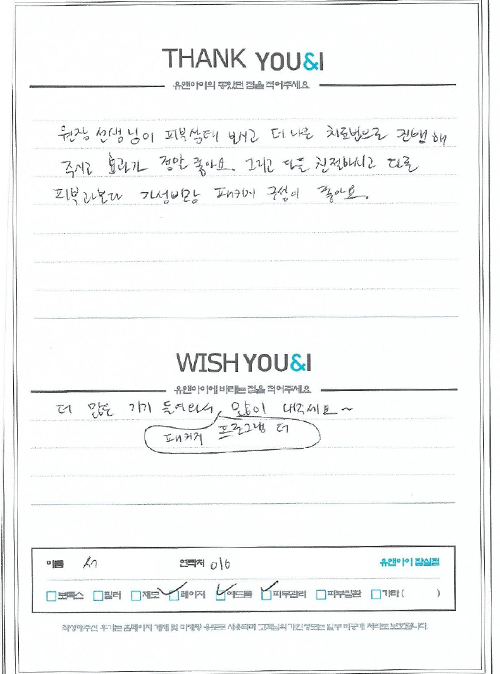 THANK YOU&I
유앤아이의 좋았던 점을 적어주세요
원장 선생님이 피부상태 보시고 더 나은 치료법으로 진행해
주시고 효과가 정말 좋아요. 그리고 다들 친절하시고 다른
피부과보다 가성비랑 패키지 구성이 좋아요.
WISH YOU&I
유앤아이에 바라는 점을 적어주세요
더 많은 기기 들여와서, 많이 내주세요~
패키지 프로그램 더
이름 서 연락처 010 유앤아이 잠실점
보톡스 필러 제모 레이저 여드름 피부관리 피부질환 기타 ( )
작성해주신 후기는 홈페이지 게재 및 마케팅 용도로 사용되며 고객님의 개인정보는 일부 비공개 처리로 보호됩니다.